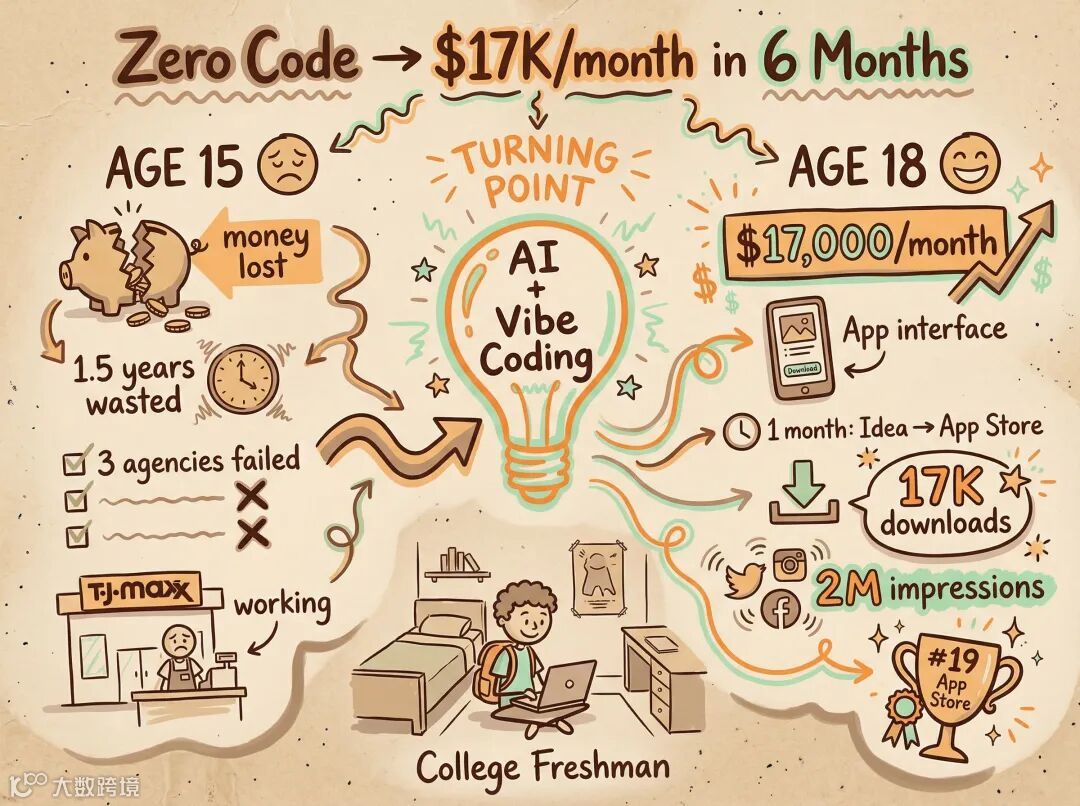 Zero Code → $17K/month in 6 Months
AGE 15
money
lost
1.5 years
wasted
3 agencies failed
T·J·maxx
working
TURNING
POINT
AI
+
Vibe
Coding
College Freshman
AGE 18
$17,000/month
App interface
Download
1 month: Idea → App Store
17K
downloads
2M impressions
#19
App
Store
大数跨境